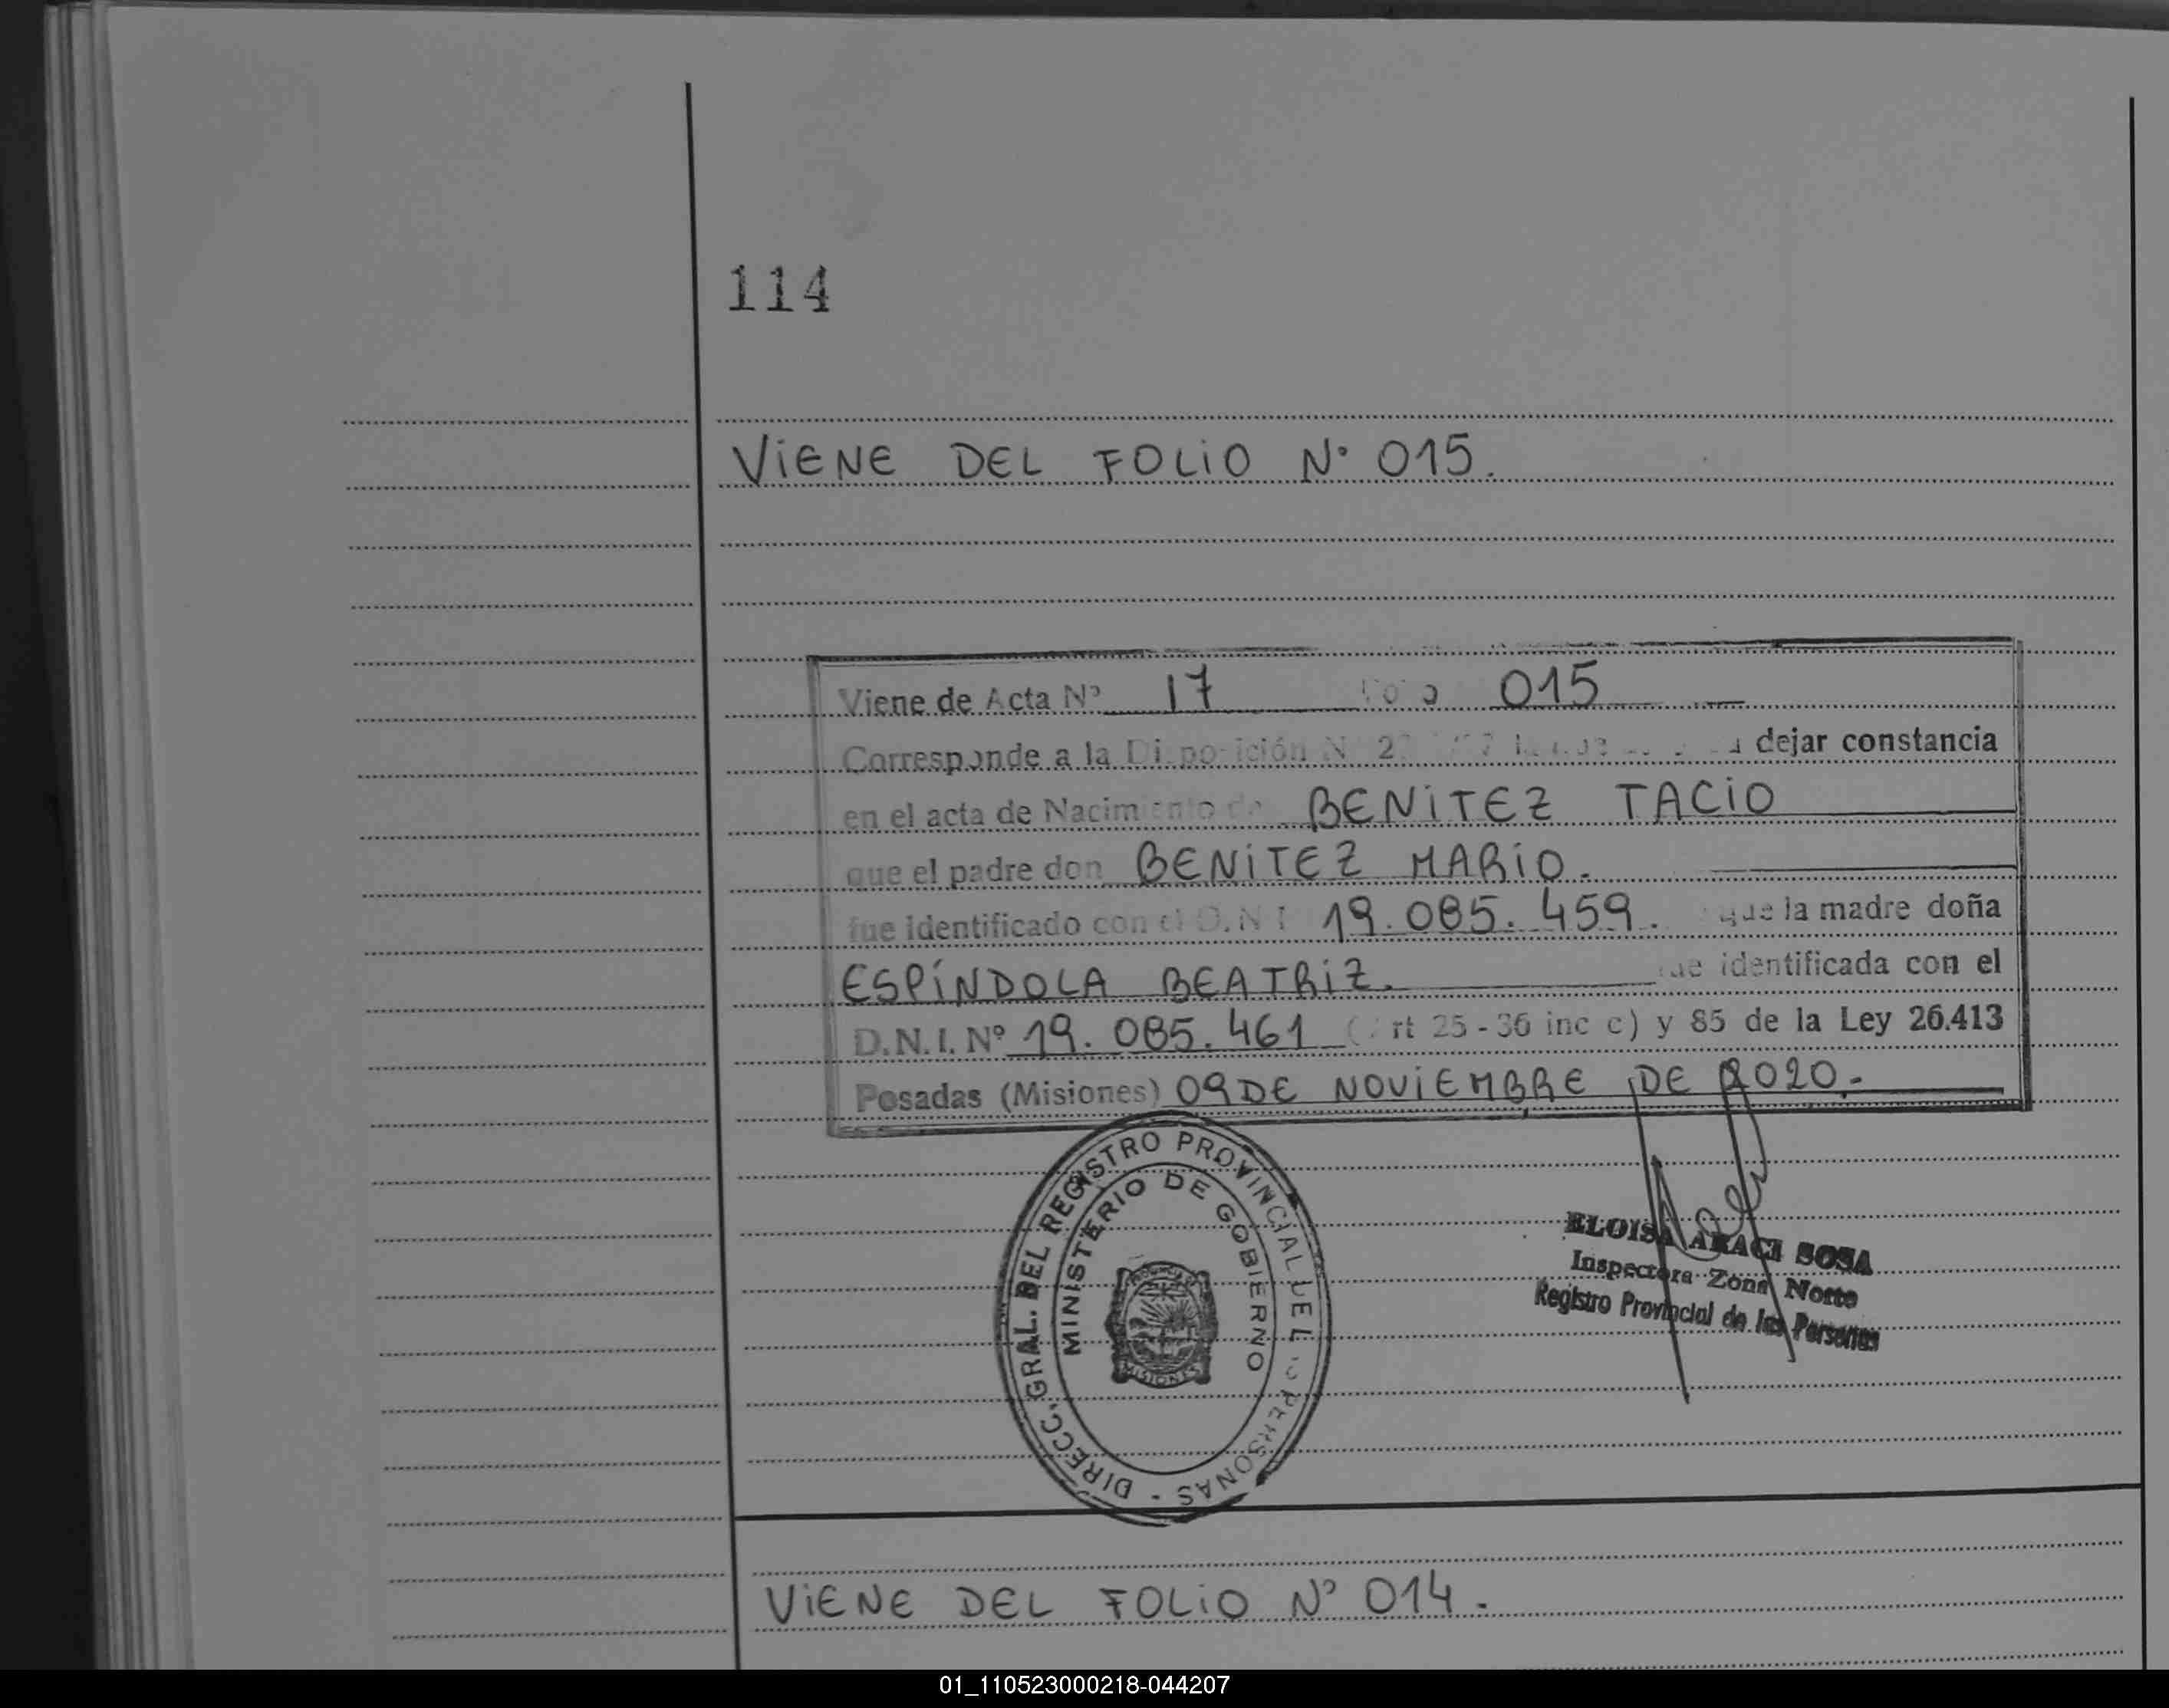 114
ViENE DEL FOLiO Nº 015.
Viene de Acta Nº 17 015
Corresponde a la Disposición Nº dejar constancia
en el acta de Nacimiento de BENiTEZ TACiO
que el padre don BENiTEZ MARiO.
fue identificado con el D.N.I 19.085.459. que la madre doña
ESPÍNDOLA BEATRiZ. fue identificada con el
D.N.I. Nº 19.085.461 (Art 25-36 inc c) y 85 de la Ley 26.413
Posadas (Misiones) 09 DE NOViEMBRE DE 2020.-
DIRECC. GRAL. DEL REGISTRO PROVINCIAL DE LAS PERSONAS -
MINISTERIO DE GOBIERNO
MISIONES
ELOISA ARACI SOSA
Inspectora Zona Norte
Registro Provincial de las Personas
ViENE DEL FOLiO Nº 014.
01_110523000218-044207